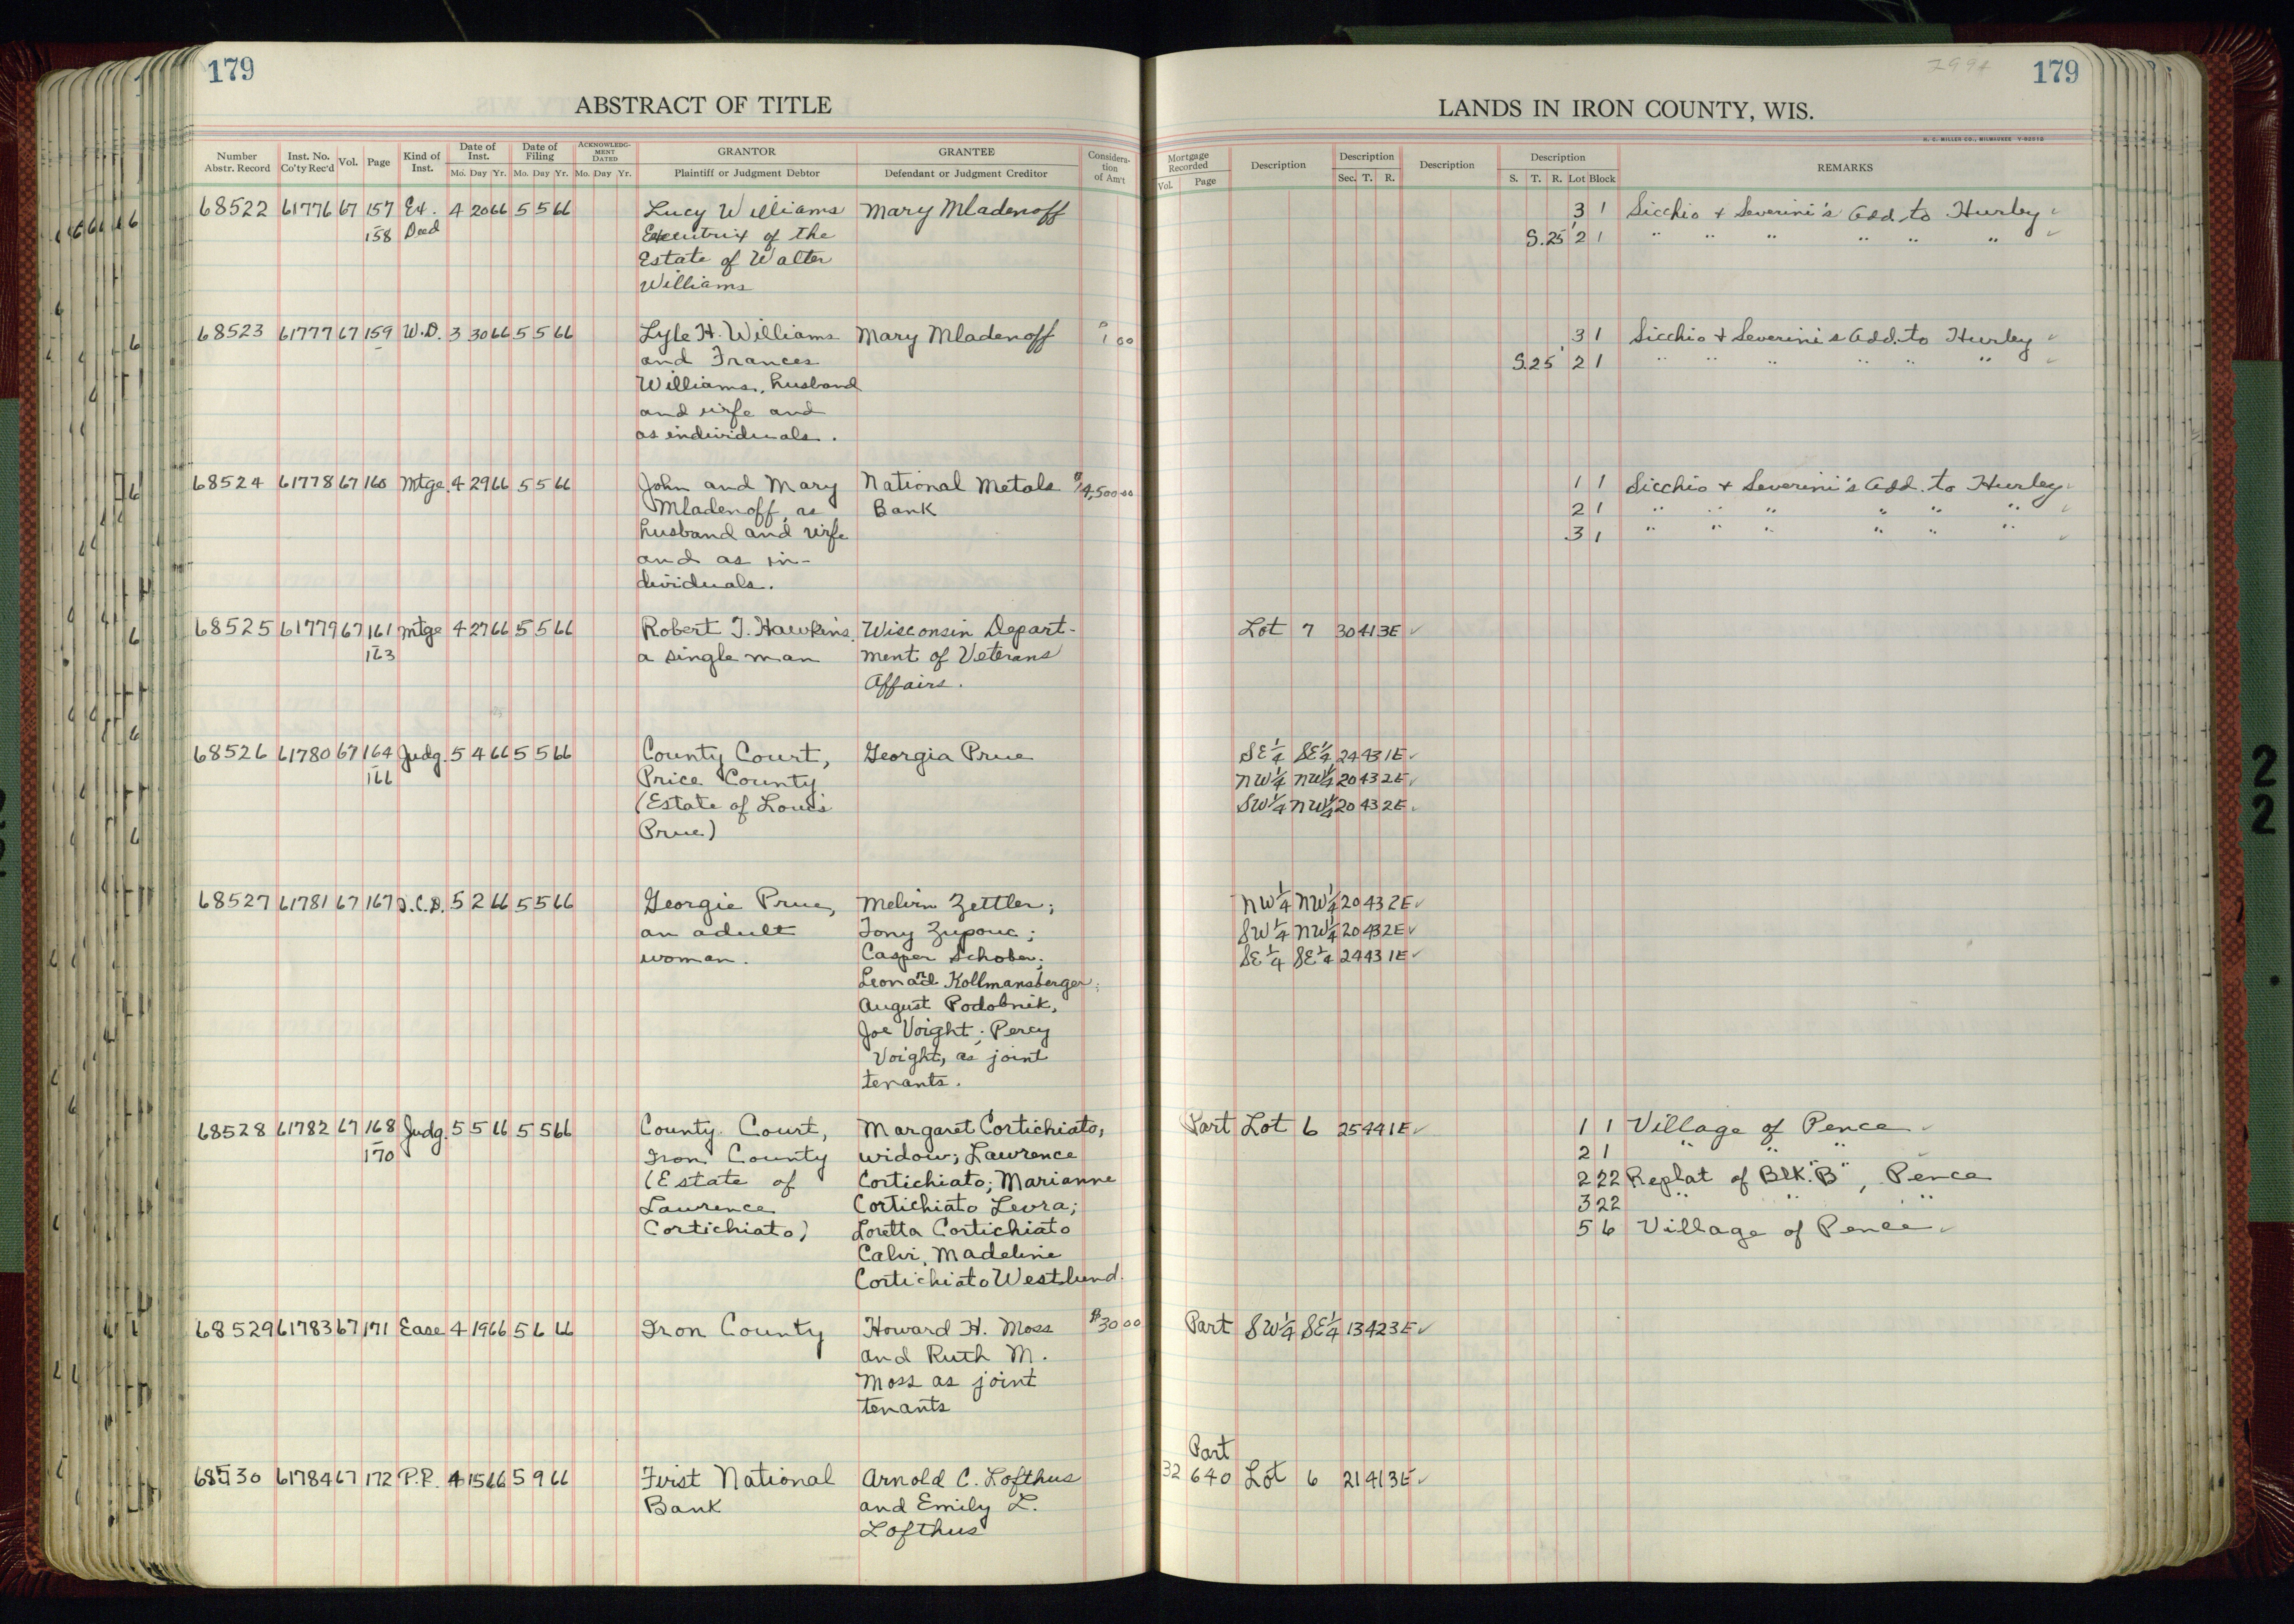 179
ABSTRACT OF TITLE
Number Abstr. Record | Inst. No. Co'ty Rec'd | Vol. | Page | Kind of Inst. | Date of Inst. Mo. Day Yr. | Date of Filing Mo. Day Yr. | ACKNOWLEDGMENT DATED Mo. Day Yr. | GRANTOR Plaintiff or Judgment Debtor | GRANTEE Defendant or Judgment Creditor | Consideration of Am't
68522 61776 67 157 Ex. 4 20 66 5 5 66 Lucy Williams Mary Mladenoff
158 Deed Executrix of the
Estate of Walter
Williams
68523 61777 67 159 W.D. 3 30 66 5 5 66 Lyle H. Williams Mary Mladenoff $1 00
and Frances
Williams, husband
and wife and
as individuals.
68524 61778 67 160 Mtge. 4 29 66 5 5 66 John and Mary National Metals $14,500 00
Mladenoff, as Bank
husband and wife
and as in-
dividuals.
68525 61779 67 161 Mtge 4 27 66 5 5 66 Robert J. Hawkins, Wisconsin Depart-
163 a single man ment of Veterans
Affairs.
68526 61780 67 164 Judg. 5 4 66 5 5 66 County Court, Georgia Prue
166 Price County
(Estate of Louis
Prue)
68527 61781 67 167 Q.C.D. 5 2 66 5 5 66 Georgie Prue, Melvin Zettler;
an adult Tony Zupouc;
woman. Casper Schober;
Leonard Kollmansberger;
August Podobnik,
Joe Voight; Percy
Voight, as joint
tenants.
68528 61782 67 168 Judg. 5 5 66 5 5 66 County Court, Margaret Cortichiato,
170 Iron County widow; Lawrence
(Estate of Cortichiato; Marianne
Lawrence Cortichiato Leora;
Cortichiato) Loretta Cortichiato
Calvi, Madeline
Cortichiato Westlund.
68529 61783 67 171 Ease 4 19 66 5 6 66 Iron County Howard H. Moss $30 00
and Ruth M.
Moss as joint
tenants
68530 61784 67 172 P.R. 4 15 66 5 9 66 First National Arnold C. Lofthus
Bank and Emily L.
Lofthus
179
LANDS IN IRON COUNTY, WIS.
H. C. MILLER CO., MILWAUKEE
Mortgage Recorded Vol. Page | Description | Description Sec. T. R. | Description | Description S. T. R. Lot Block | REMARKS
3 1 Sicchio + Severini's Add. to Hurley ✓
S. 25' 2 1 " " " " " " ✓
3 1 Sicchio + Severini's Add. to Hurley ✓
S. 25' 2 1 " " " " " " ✓
1 1 Sicchio + Severini's Add. to Hurley ✓
2 1 " " " " " " ✓
3 1 " " " " " " ✓
Lot 7 30 41 3E ✓
SE¼ SE¼ 24 43 1E ✓
NW¼ NW¼ 20 43 2E ✓
SW¼ NW¼ 20 43 2E ✓
NW¼ NW¼ 20 43 2E ✓
SW¼ NW¼ 20 43 2E ✓
SE¼ SE¼ 24 43 1E ✓
Part Lot 6 25 44 1E ✓ 1 1 Village of Pence ✓
2 1 " " "
2 22 Replat of Blk. "B", Pence
3 22 " " "
5 6 Village of Pence ✓
Part SW¼ SE¼ 13 42 3E ✓
Part
32 640 Lot 6 21 41 3E ✓